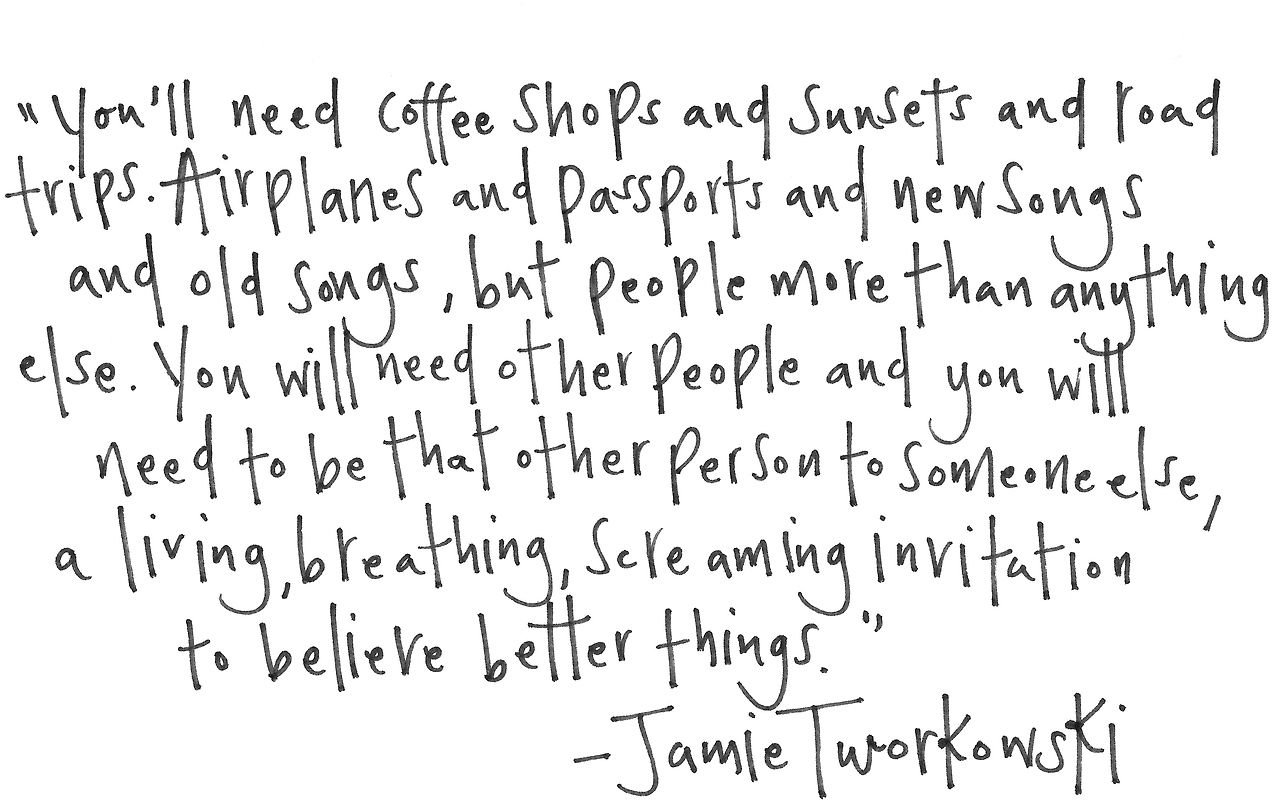 "You'll need coffee shops and sunsets and road
trips. Airplanes and passports and new songs
and old songs, but people more than anything
else. You will need other people and you will
need to be that other person to someone else,
a living, breathing, screaming invitation
to believe better things."
- Jamie Tworkowski